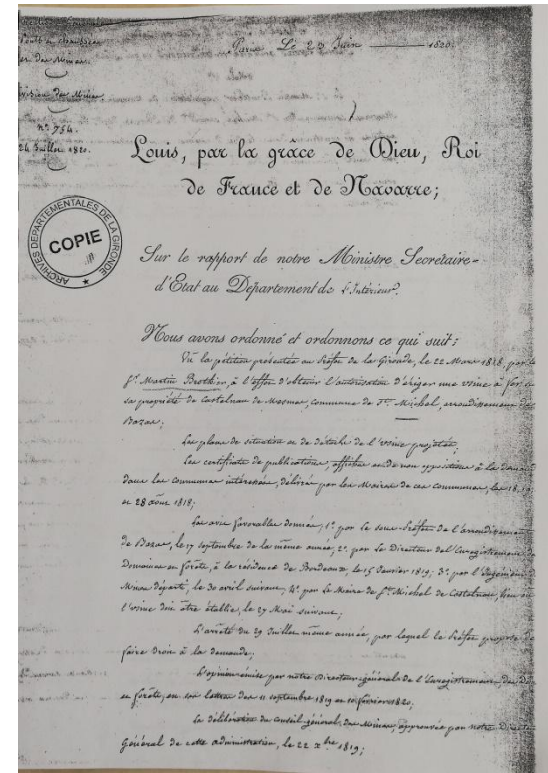 Ponts et chaussées
et des Mines.
Division des Mines
n.º 754.
24 Juillet 1820.
Paris Le 23 Juin 1820.
Louis, par la grâce de Dieu, Roi
de France et de Navarre;
ARCHIVES DEPARTEMENTALES DE LA GIRONDE
COPIE
Sur le rapport de notre Ministre Secrétaire-
d'État au Département de l'Intérieur.
Nous avons ordonné et ordonnons ce qui suit:
Vu la pétition présentée au Préfet de la Gironde, le 22 Mars 1818, par le
S.r Martin Brothier, à l'effet d'obtenir l'autorisation d'ériger une usine à fer, sur
sa propriété de Castelnau de Mesmes, commune de S.t Michel, arrondissement de
Bazas;
Les plans de situation et de détails de l'usine projetée;
Les certificats de publications, affiches et de non opposition à la demande
dans les communes intéressées, délivrés par les Maires de ces communes, les 18, 19
et 28 août 1818;
Les avis favorables donnés, 1.º par le sous-Préfet de l'arrondissement
de Bazas, le 17 septembre de la même année, 2.º par le Directeur de l'Enregistrement, des
Domaines et forêts, à la résidence de Bordeaux, le 15 Janvier 1819; 3.º par l'Ingénieur
Mines départi, le 30 avril suivant, 4.º par le Maire de S.t Michel de Castelnau, lieu où
l'usine doit être établie, le 27 Mai suivant;
L'arrêté du 29 Juillet même année, par lequel le Préfet propose de
faire droit à la demande;
L'opinion émise par notre Directeur général de l'Enregistrement, des
et forêts, en ses lettres des 11 septembre 1819 et 10 février 1820;
La délibération du conseil général des Mines, approuvée par notre Directeur
Général de cette administration, le 22 X.bre 1819;